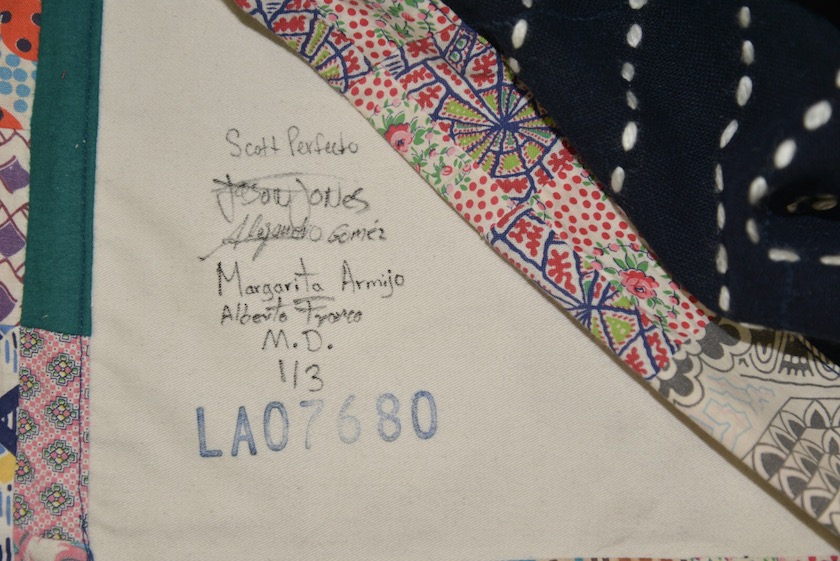 Scott Perfecto
Jason Jones
Alejandro Goméz
Margarita Armijo
Alberto Franco
M.D.
1/3
LA07680